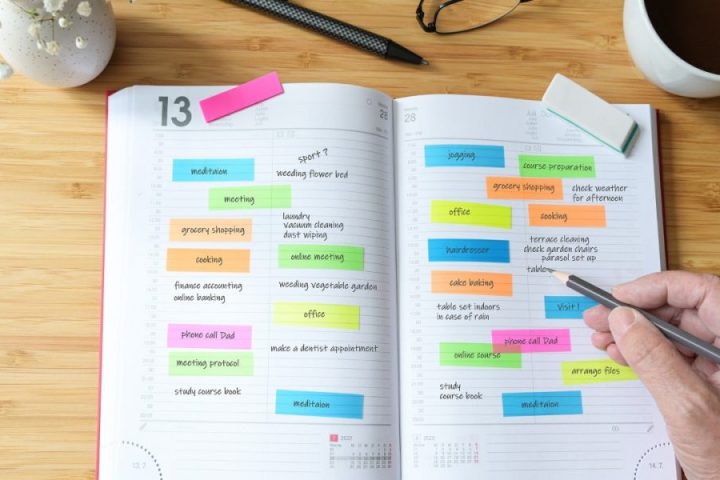 13
28
sport ?
meditaion
weeding flower bed
meeting
laundry
vacuum cleaning
dust wiping
grocery shopping
online meeting
cooking
finance accounting
online banking
weeding vegetable garden
office
phone call Dad
make a dentist appointment
meeting protocol
study course book
meditaion
13. 7.
28
jogging
course preparation
grocery shopping
check weather
for afternoon
office
cooking
terrace cleaning
check garden chairs
parasol set up
hairdresser
table
cake baking
table set indoors
in case of rain
Visit !
phone call Dad
online course
arrange files
study
course book
meditaion
14. 7.